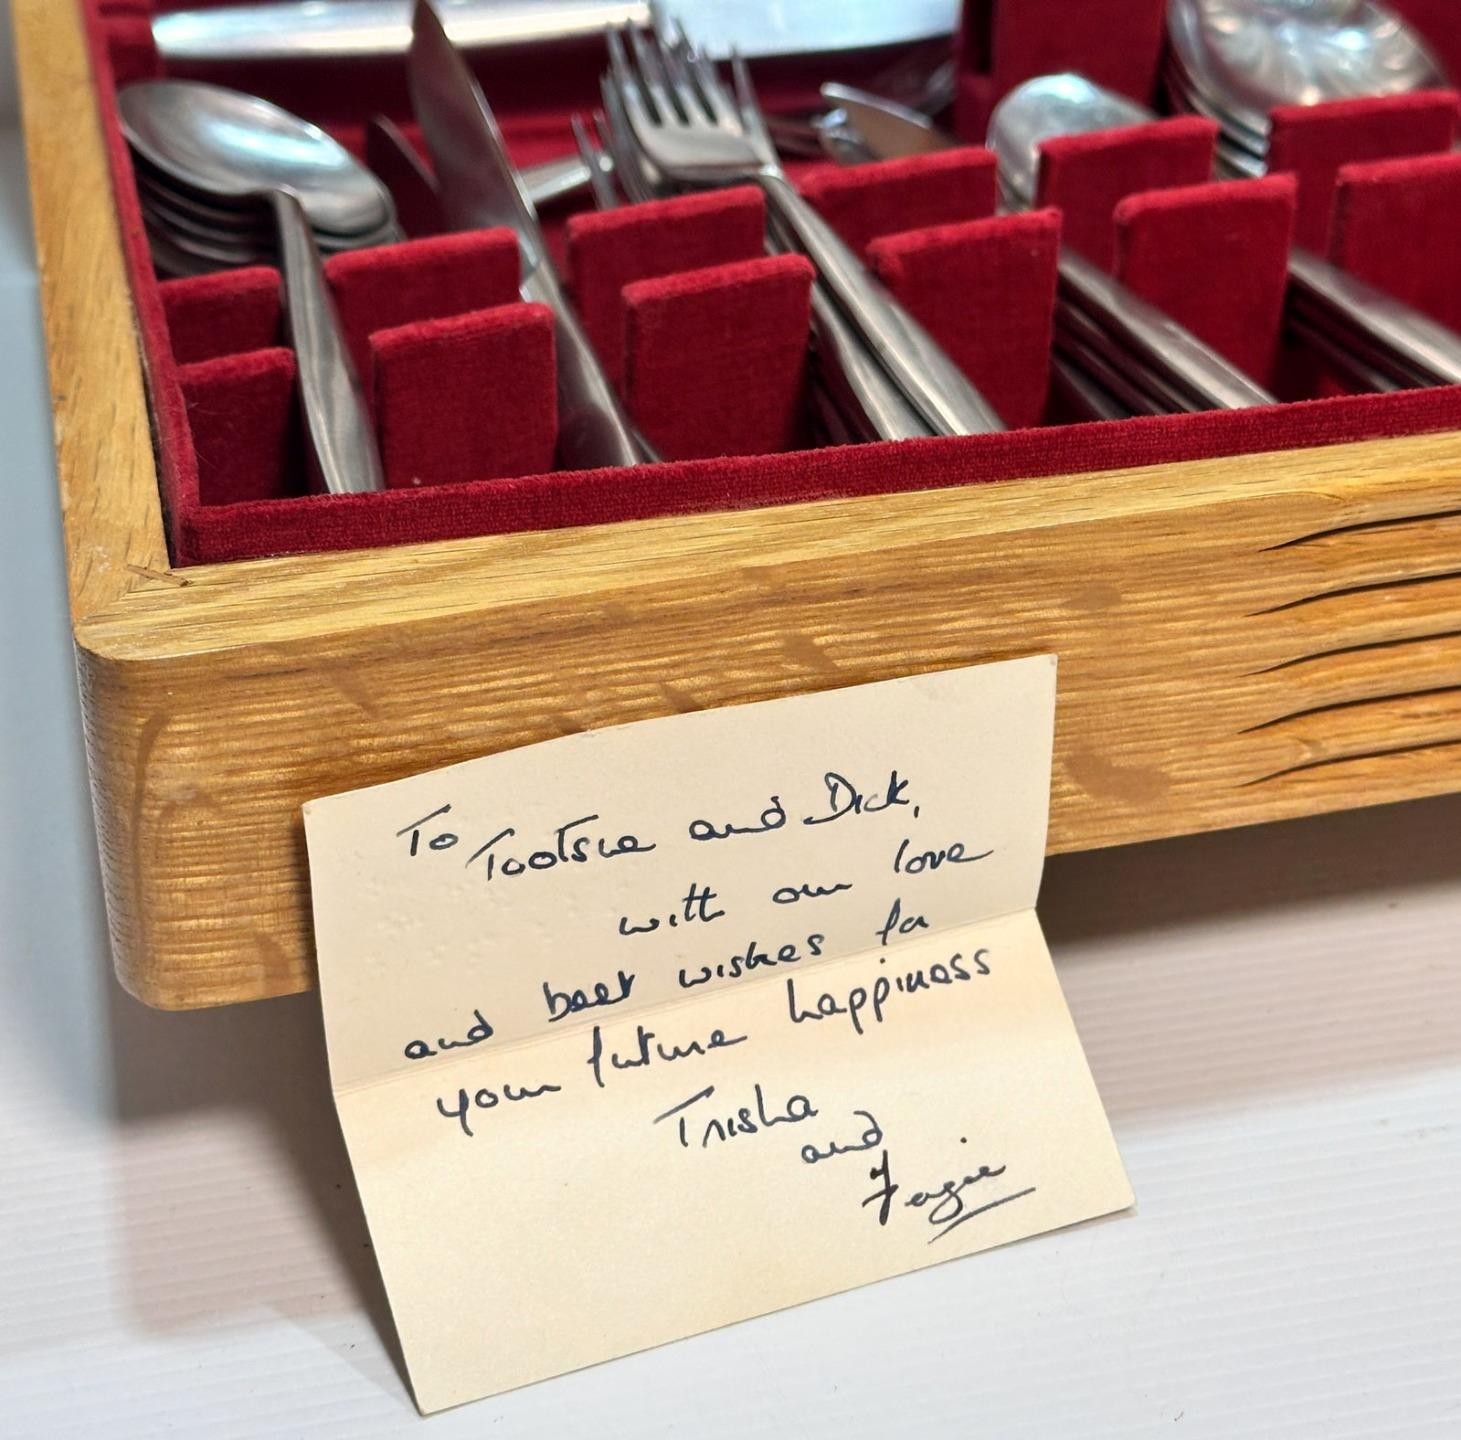 To Tootsie and Dick,
with our love
and best wishes for
your future happiness
Trisha
and
Fagie